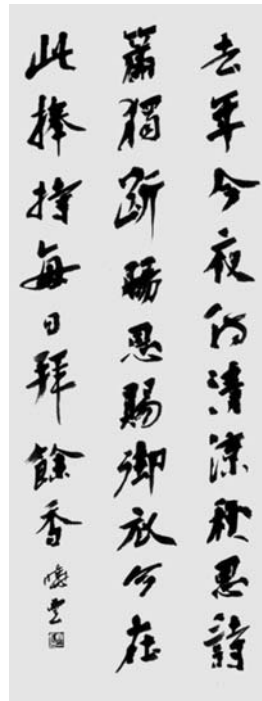 去年今夜侍清涼秋思詩
篇獨斷腸恩賜御衣今在
此捧持每日拜餘香